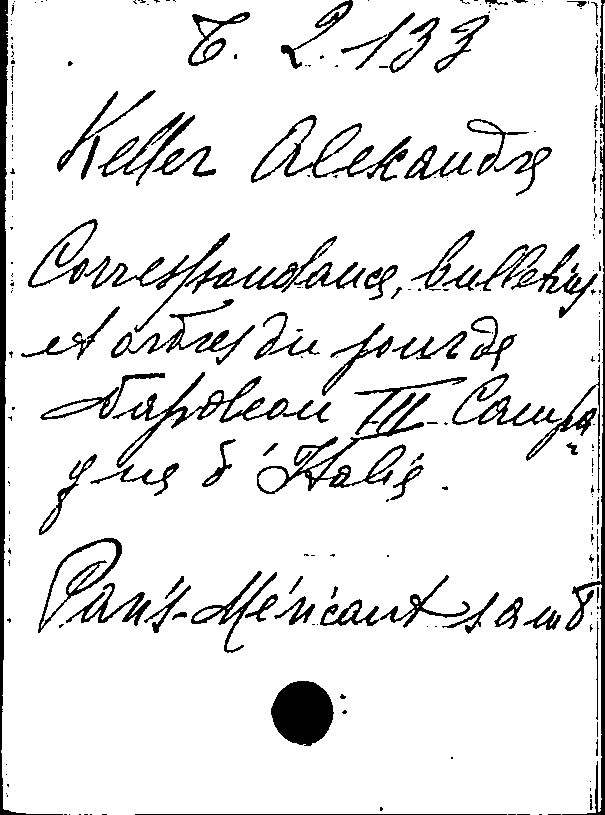 T. 2.133
Keller Alexandre
Correspondance, bulletins
et ordres du jour de
Napoleon III Campa
gne d'Italie.
Paris-Méricant s.a.